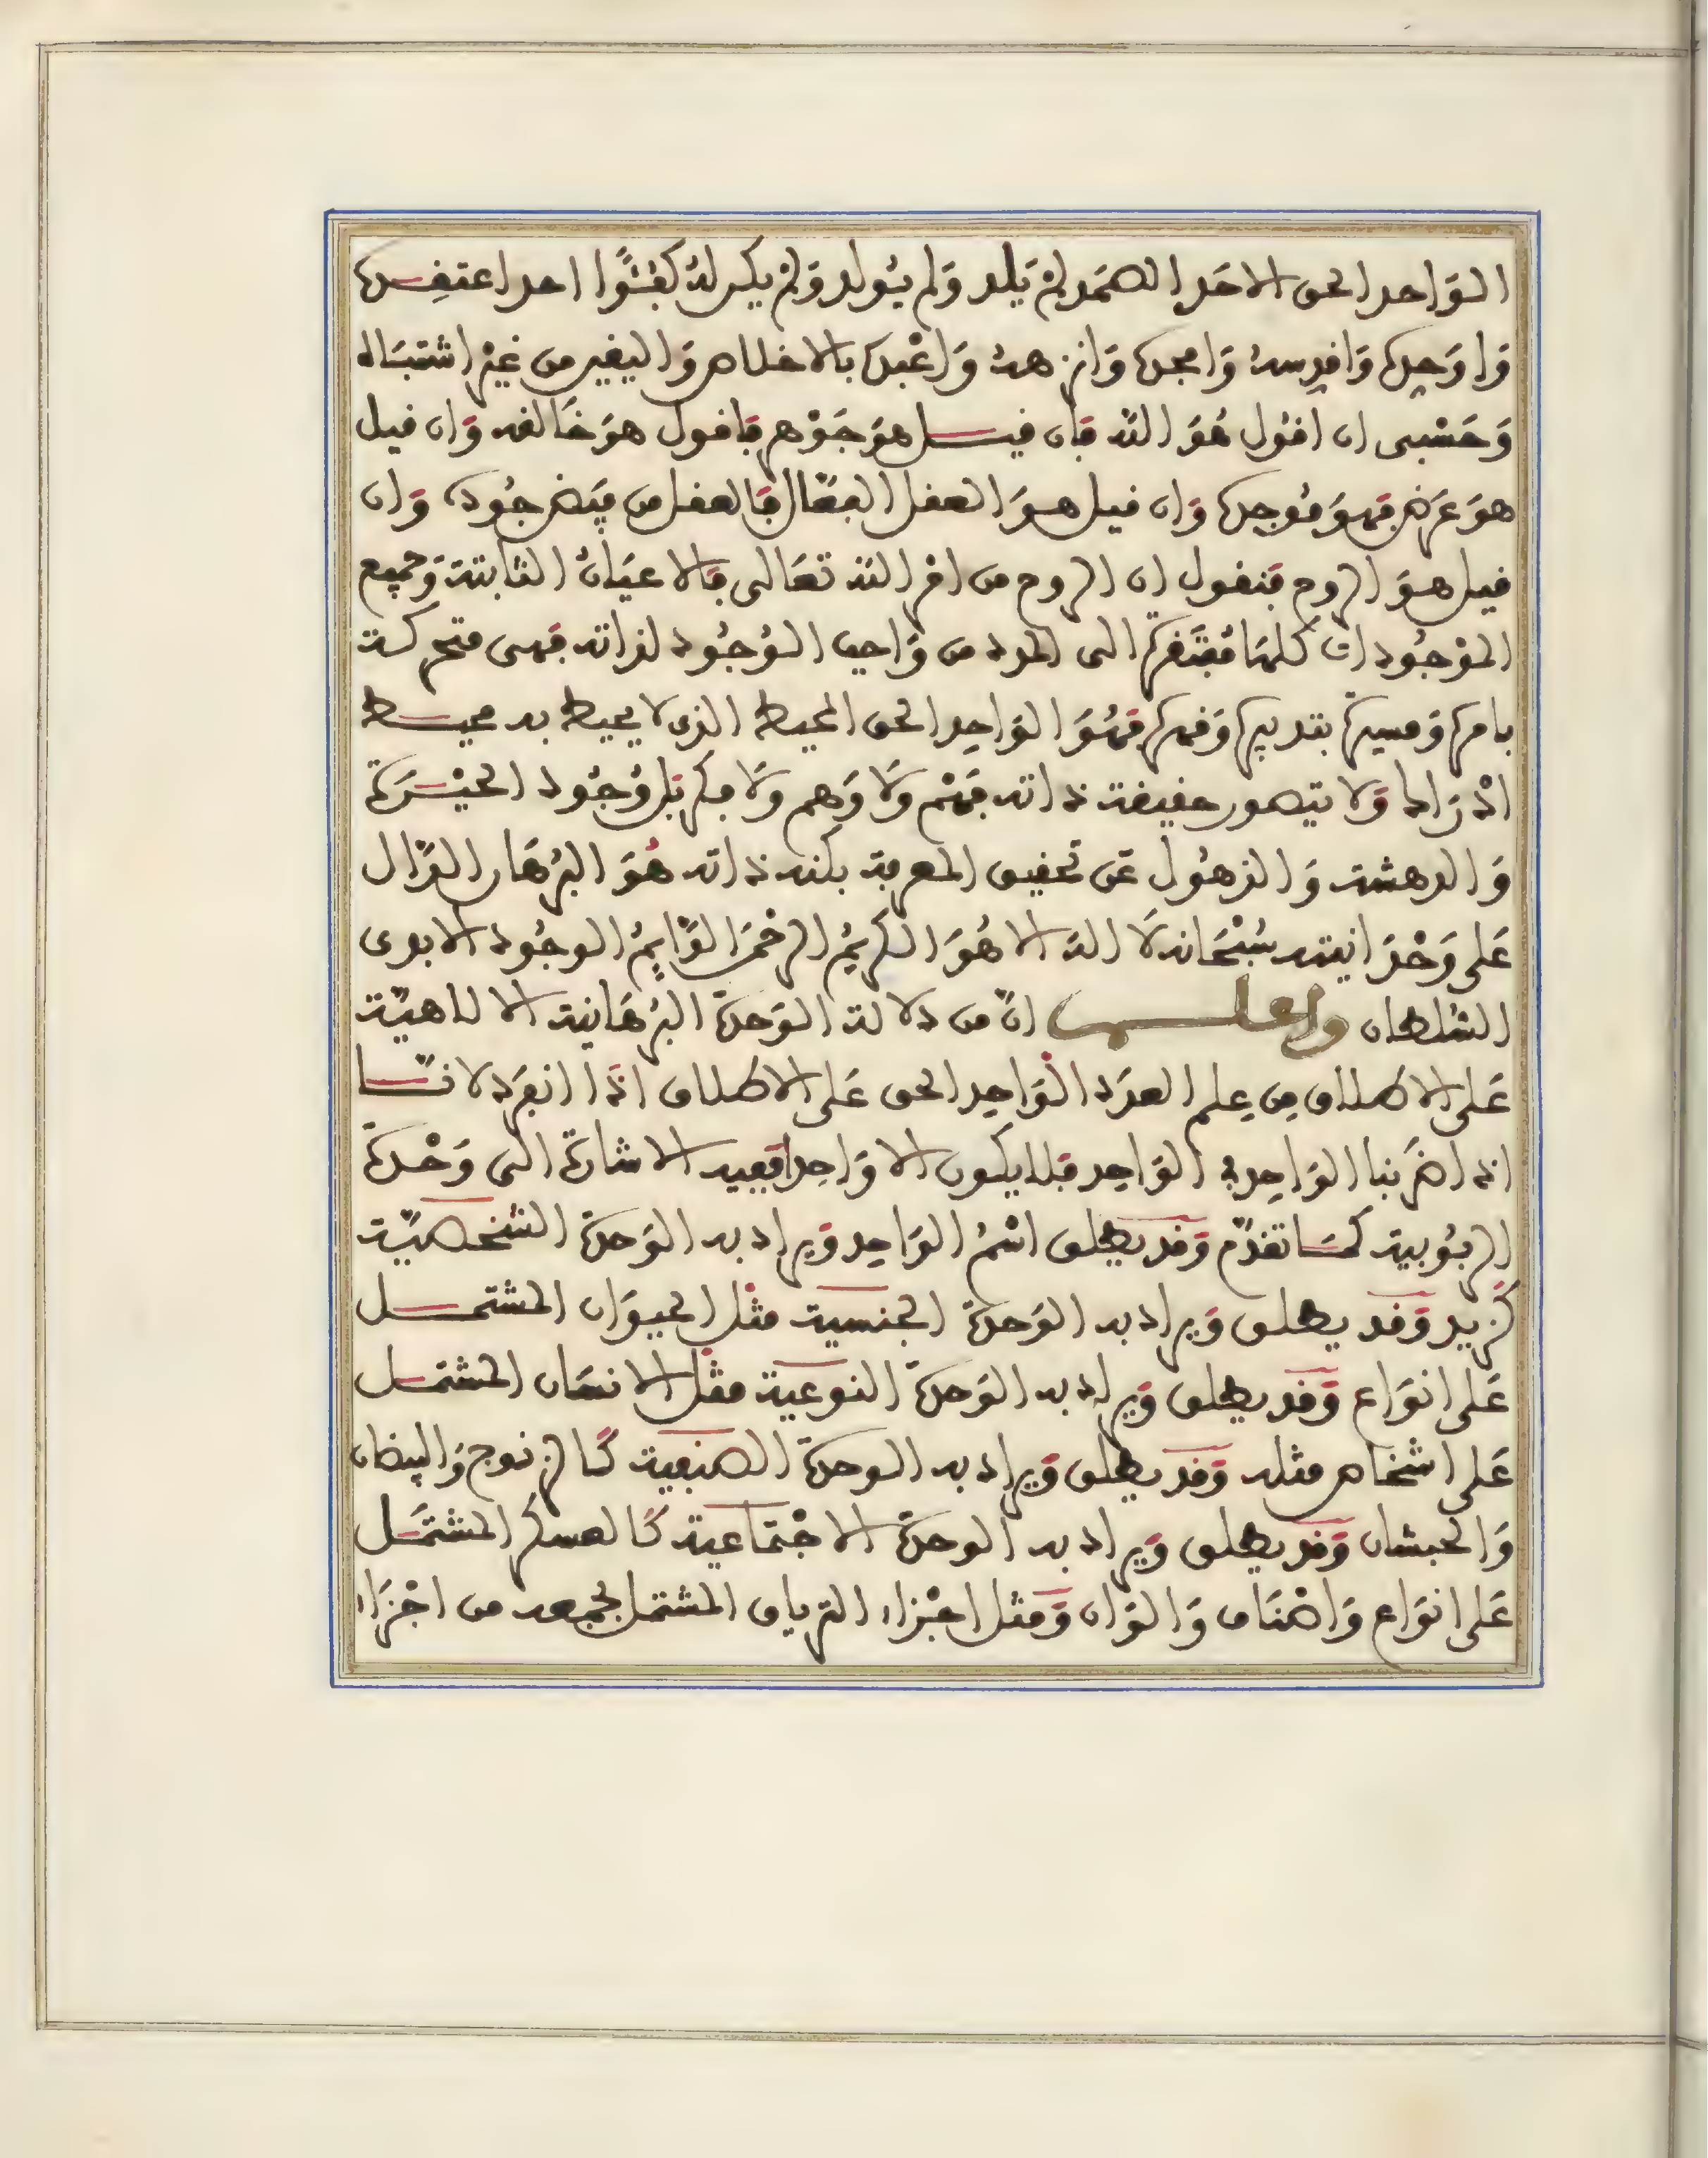 الوَاحد الحق الاحَد الصمَد لمْ يَلد وَلم يُولد وَلمْ يكن لهُ كُفُؤًا احد اعتقِده
وَاوَحِده وَاقدِسهُ وَامجده وَانزههُ وَاعْبده بالاخلاص وَاليقين من غيْر اشتبَاه
وَحَسْبى ان اقوُل هُوَ الله فَان قيل هوَ جَوْهر فاقول هوَ خَالقه وَان قيل
هوَ عَرَض فَهوَ مُوجده وَان قيل هوَ العقل الفعّال فَالعقل من فيض جُوده وَان
قيل هوَ الروح فنقول ان الروح من امْر الله تعَالى فَالاعيَانُ الثابتة وَجميع
الموْجُودات كلهَا مُفتَقرة الى المدد من وَاجب الوُجُود لذاته فهى متحركة
بامره وَمسيرة بتدبيره وَقهره فهُوَ الوَاحِد الحق المحيط الذى لا يحيط به محيط
ادْرَاكا وَلا يتصور حقيقة ذاته فَهْم وَلَا وَهم وَلَا فكر بَل وُجُود الحيْرَة
وَالدهشة وَالذهُول عَن تحقيق المعرفة بكنه ذاته هُوَ البُرهَان الدّال
عَلى وَحْدَانيته سُبْحَانه لَا اله الا هُوَ الكريُم الرحْمَن الدَّايِمُ الوجُود الابدى
السُلطان واعلم انّ من دلالة الوَحدة البُرهَانية الالاهيّة
عَلى الاطلاق مِن عِلم العدَد الوَاحِد الحق عَلى الاطلاق اذَا انفرَد لانّا
اذا ضرَبنا الوَاحِد في الوَاحِد فلا يكون الا وَاحِدا فَفيه الاشارَة الى وَحْدَة
الربُوبية كمَا تقدّم وَقد يطلق اسْمُ الوَاحِد وَيراد به الوَحدة الشخصيّة
كَزيد وَقد يطلق وَيراد به الوَحدة الجنسية مثل الحيوَان المشتمل
عَلى انوَاع وَقد يطلق وَيراد به الوَحدة النوعية مثل الانسَان المشتمل
عَلى اشخاص مثله وَقد يطلق وَيراد به الوحدة الصنفية كَالزنوج وَالبيضان
وَالحبشان وَقد يطلق وَيراد به الوحدة الاجْتمَاعية كَالعسكر المشتمَل
عَلى انوَاع وَاصْنَاف وَالوَان وَمثل اجْزاء الترياق المشتمل بجمعه من اجْزَاء